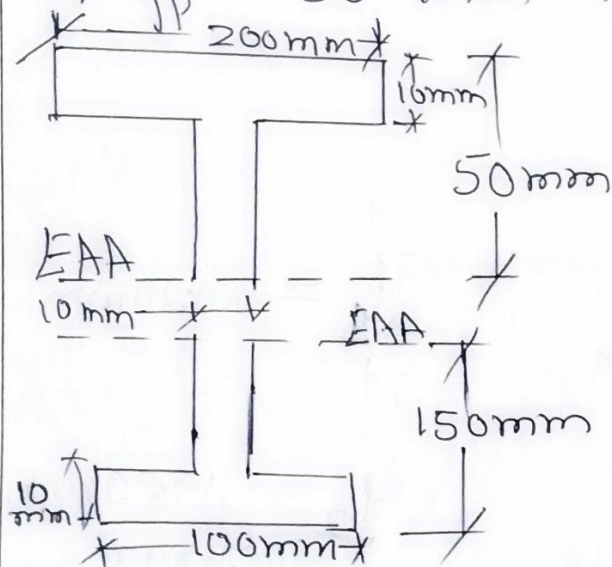 200mm
10mm
50mm
EAA
10mm
EAA
150mm
10
mm
100mm